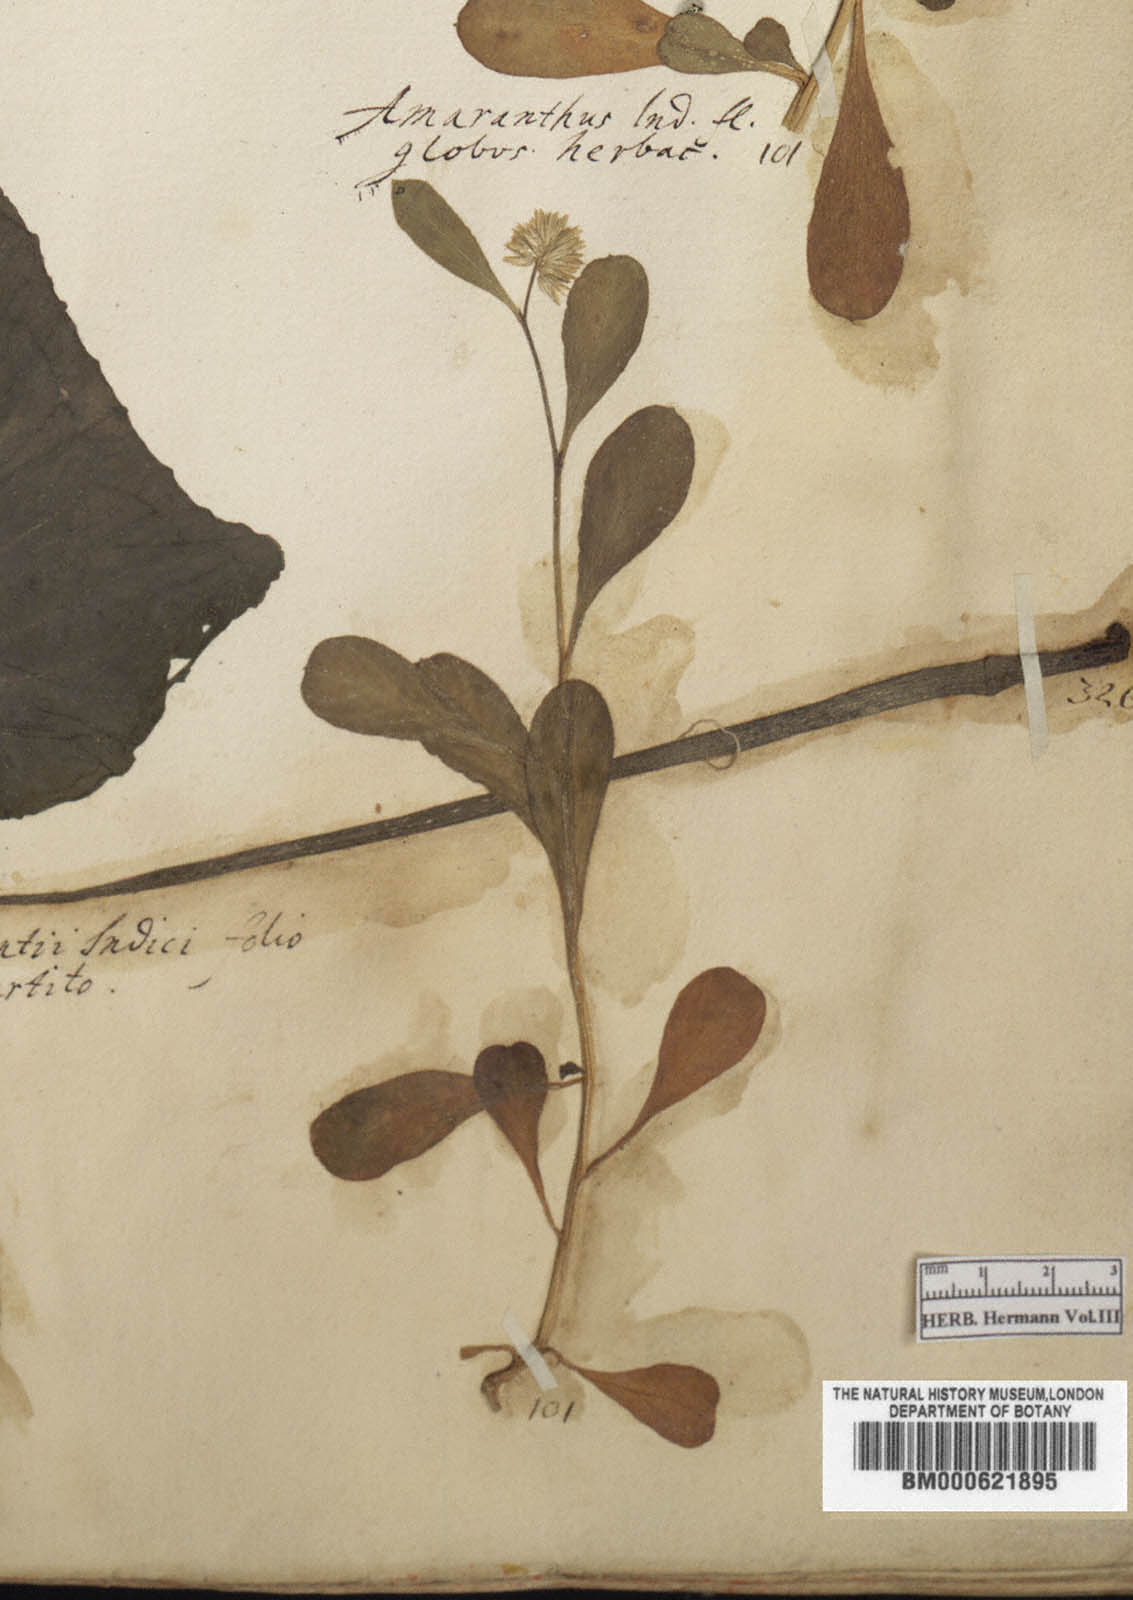 Amaranthus Ind. fl.
globos. herbac. 101
326
atii Indici folio
artito.
mm 1 2 3
HERB. Hermann Vol.III
101
THE NATURAL HISTORY MUSEUM,LONDON
DEPARTMENT OF BOTANY
BM000621895